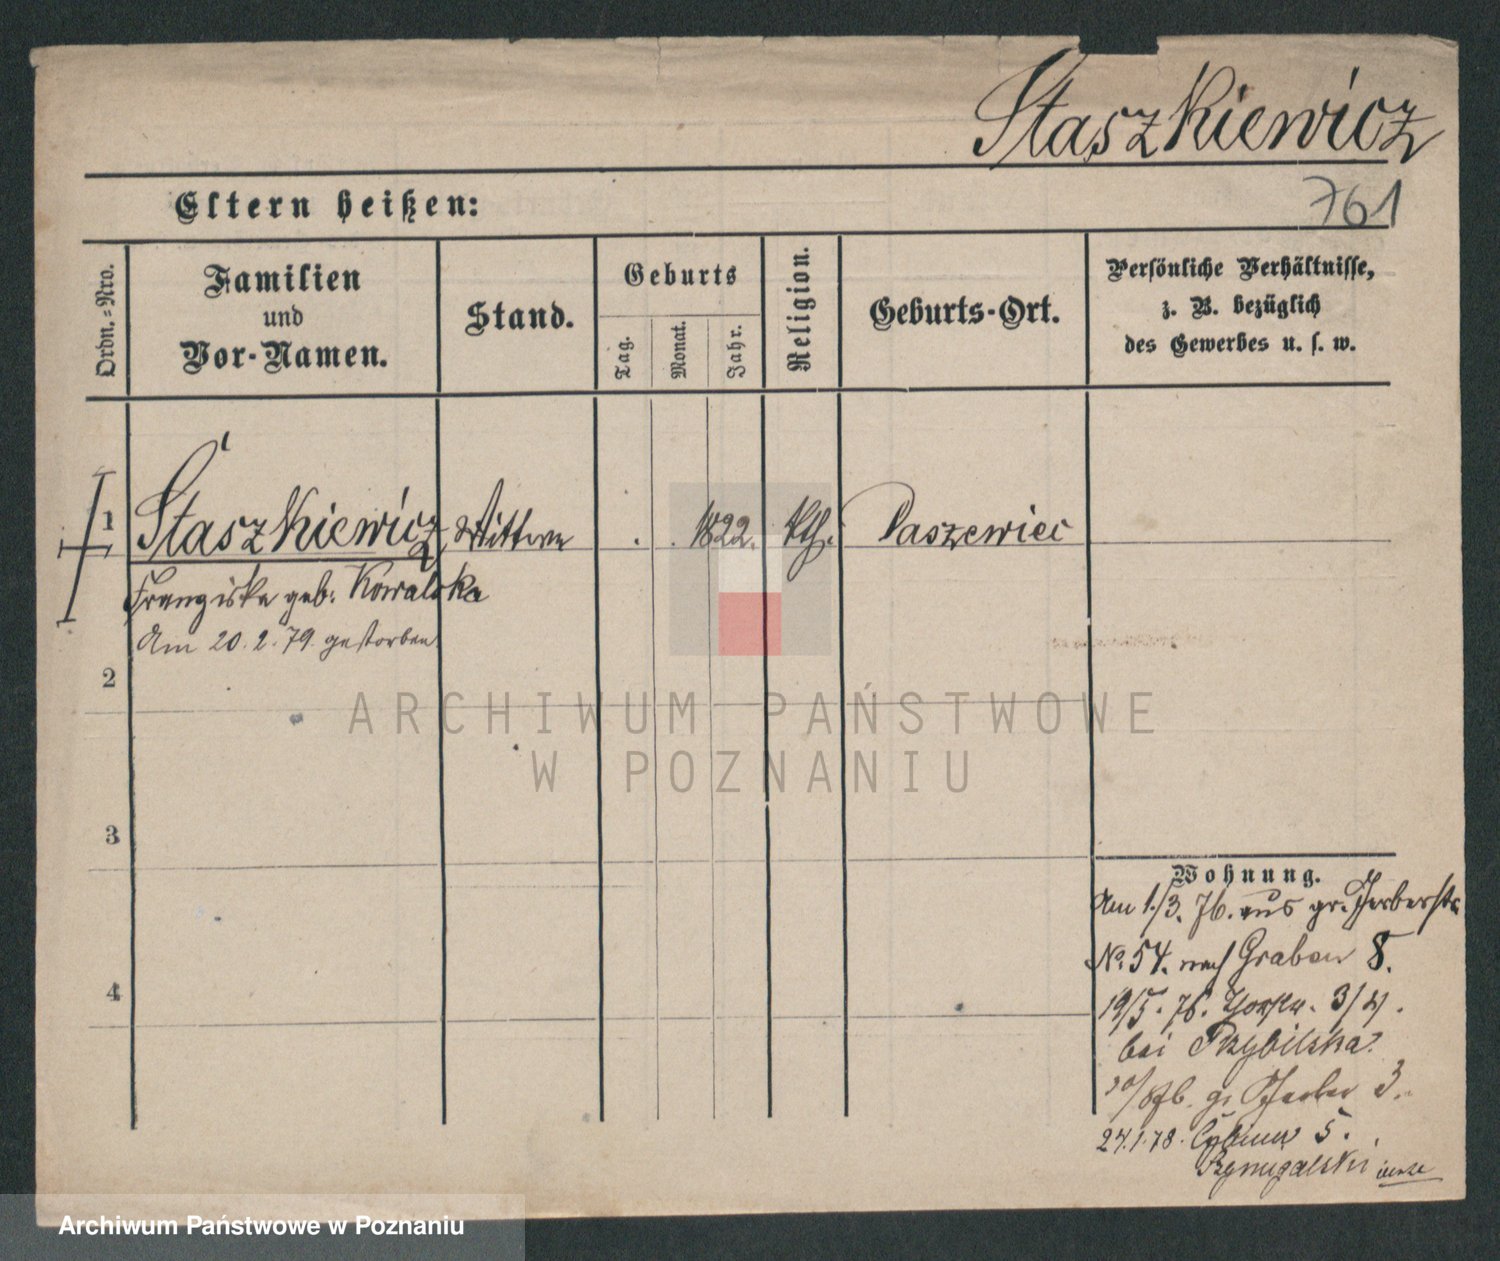 Staszkiewicz
761
Eltern heißen:
Ordn.=Nro.
Familien
und
Vor-Namen.
Stand.
Geburts
Tag.
Monat.
Jahr.
Religion.
Geburts-Ort.
Persönliche Verhältnisse,
z. B. bezüglich
des Gewerbes u. s. w.
1
Staszkiewicz Wittwe . . 1822. kth. Paszewiec
Franziska geb. Kowalska
Am 20. 2. 79. gestorben
2
3
4
ARCHIWUM PAŃSTWOWE
W POZNANIU
Wohnung.
Am 1./3. 76. aus gr. Gerberstr
No. 54. nach Graben 8.
19/5. 76. 3/4.
bei Przybilska.
gr Gerber 3.
24.1.78. Cybina 5.
Archiwum Państwowe w Poznaniu